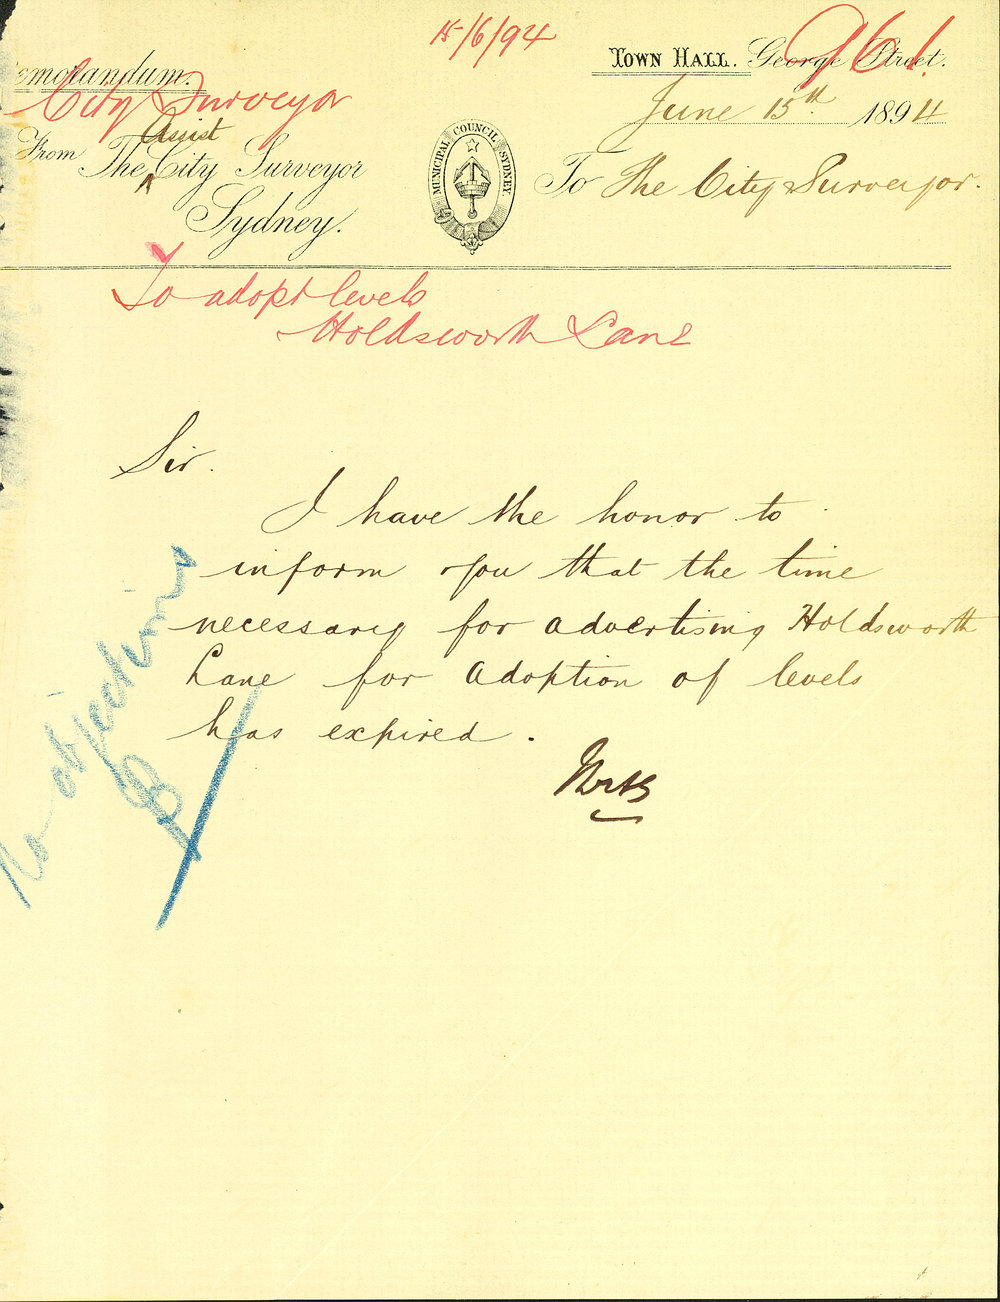 15/6/94
961
TOWN HALL. George Street.
emorandum.
City Surveyor
June 15th 1894
Assist
From The ^ City Surveyor
Sydney.
MUNICIPAL COUNCIL SYDNEY
To The City Surveyor.
To adopt levels
Holdsworth Lane
Sir.
I have the honor to
inform you that the time
necessary for advertising Holdsworth
Lane for Adoption of levels
has expired.
No objections